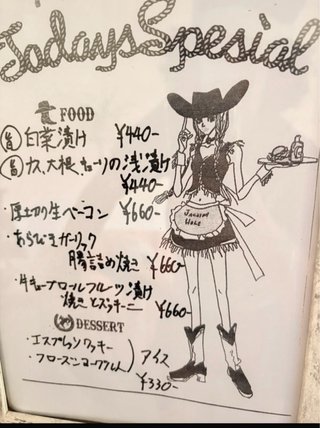 Todays Spesial
FOOD
旨 白菜漬け ¥440-
旨 ナス、大根、キューリの浅漬け
¥440-
・厚切り生ベーコン ¥660-
・あらびきガーリック
腸詰め焼き ¥660-
・牛キューブロールフルーツ漬け
焼きとズッキーニ ¥660-
DESSERT
・エスプレッソクッキー
・フローズンヨーグルト
アイス
¥330-
JACKSON
HOLE